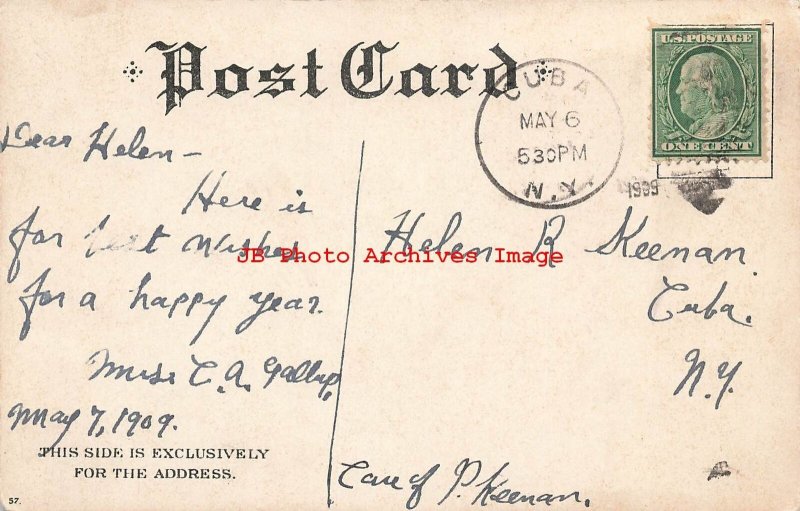 Post Card
CUBA
MAY 6
530PM
N.Y.
1909
U.S. POSTAGE
ONE CENT
Dear Helen -
Here is
for best wishes
for a happy year.
Miss C. A. Gallup,
May 7, 1909.
THIS SIDE IS EXCLUSIVELY
FOR THE ADDRESS.
57.
Helen R Keenan
Cuba.
N.Y.
Care of P. Keenan.
JB Photo Archives Image